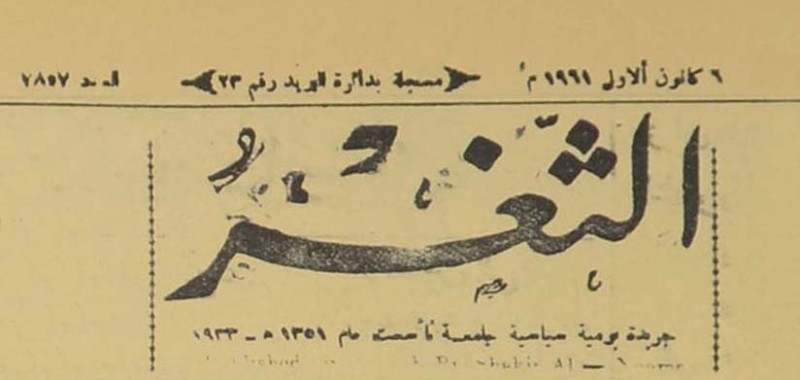 ٦ كانون الاول ١٩٦١ م مسجلة بدائرة البريد رقم ٢٣ العدد ٧٨٥٧
الثغر
جريدة يومية سياسية جامعة تأسست عام ١٣٥١ هـ ــ ١٩٣٣